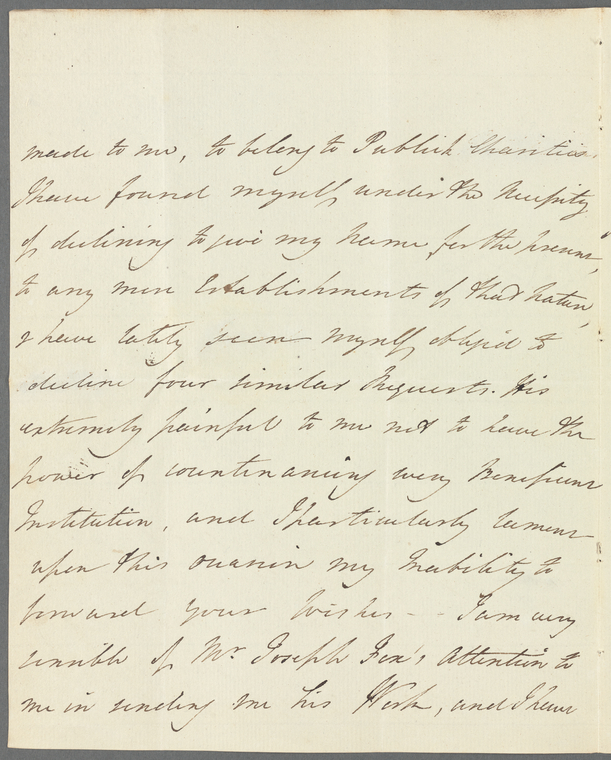 made to me, to belong to Publick Charities.
I have found myself under the Necessity
of declining to give my Name for the present,
to any more Establishments of that Nature,
& have lately seen myself oblig'd to
decline four similar Requests. It is
extremely painful to me not to have the
power of countenancing every Beneficent
Institution, and I particularly lament
upon this occasion my Inability to
forward your Wishes -- I am very
sensible of Mr. Joseph Fox's Attention to
me in sending me his Work, and I have